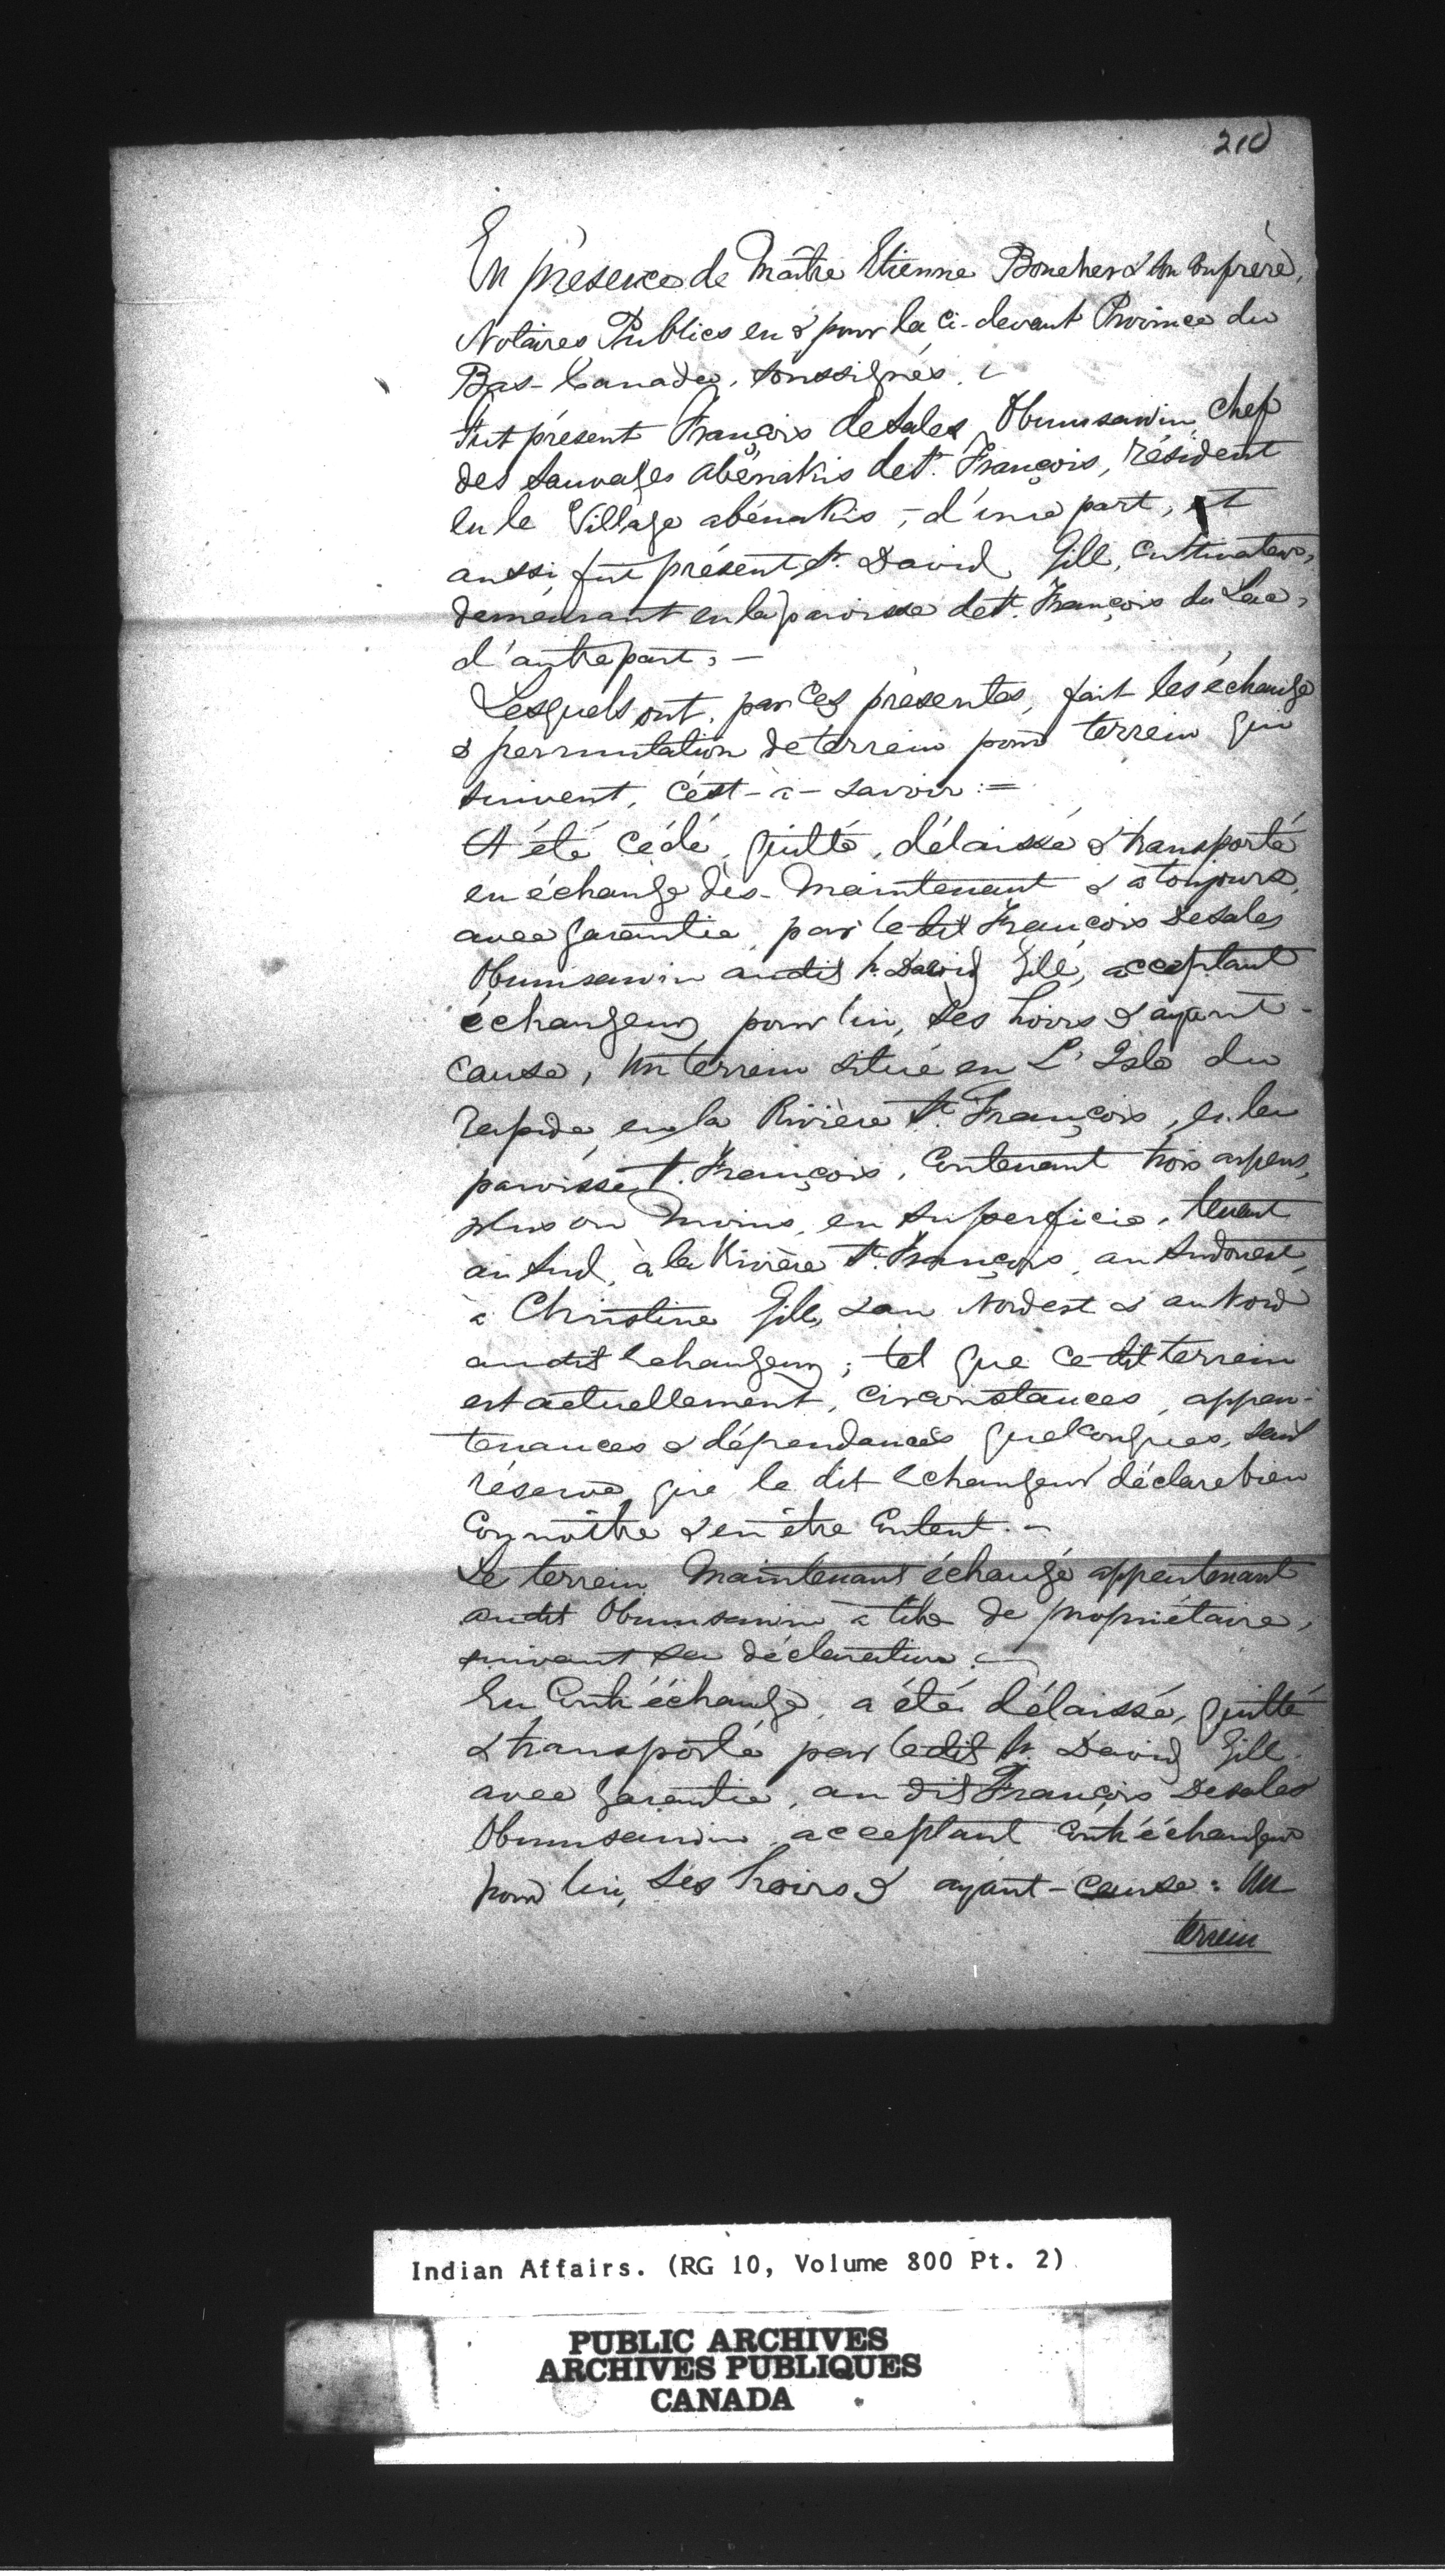 210
En présence de Maître Etienne Boucher & son confrère,
Notaires Publics en & pour la ci-devant Province du
Bas-Canada, soussignés.
Fut présent François deSales Obumsawin, chef
des Sauvages abénakis de St. François, résident
en le Village abénakis, - d'une part, et
aussi fut présent Sr. David Gill, cultivateur,
demeurant en la paroisse de St. François du Lac,
d'autre part, -
Lesquels ont, par ces présentes, fait les échange
& permutation de terrein pour terrein qui
suivent, c'est-à-savoir :=
A été cédé, quitté, délaissé & transporté
en échange dès-maintenant & à toujours,
avec garantie, par ledit François Desales
Obumsawin audit Sr. David Gill, acceptant
échangeur pour lui, ses hoirs & ayant-
cause, un terrein situé en L'Isle du
rapide, en la Rivière St. François, en la
paroisse St. François, contenant trois arpens,
plus ou moins, en superficie, tenant
au Sud, à la Rivière St. François, au Sudouest,
à Christine Gill, & au Nordest & au Nord
audit echangeur; tel que ce dit terrein
est actuellement, circonstances, appar-
tenances & dépendances quelconques, sans
réserve, que le dit echangeur déclare bien
connoître & en être content. -
Le terrein maintenant échangé appartenant
audit Obumsawin à titre de propriétaire,
suivant sa déclaration.
En contr'échange, a été délaissé, quitté
& transporté par ledit Sr. David Gill
avec garantie, au dit François Desales
Obumsawin, acceptant contr'échangeur
pour lui, ses hoirs & ayant-cause : un
terrein
Indian Affairs. (RG 10, Volume 800 Pt. 2)
PUBLIC ARCHIVES
ARCHIVES PUBLIQUES
CANADA